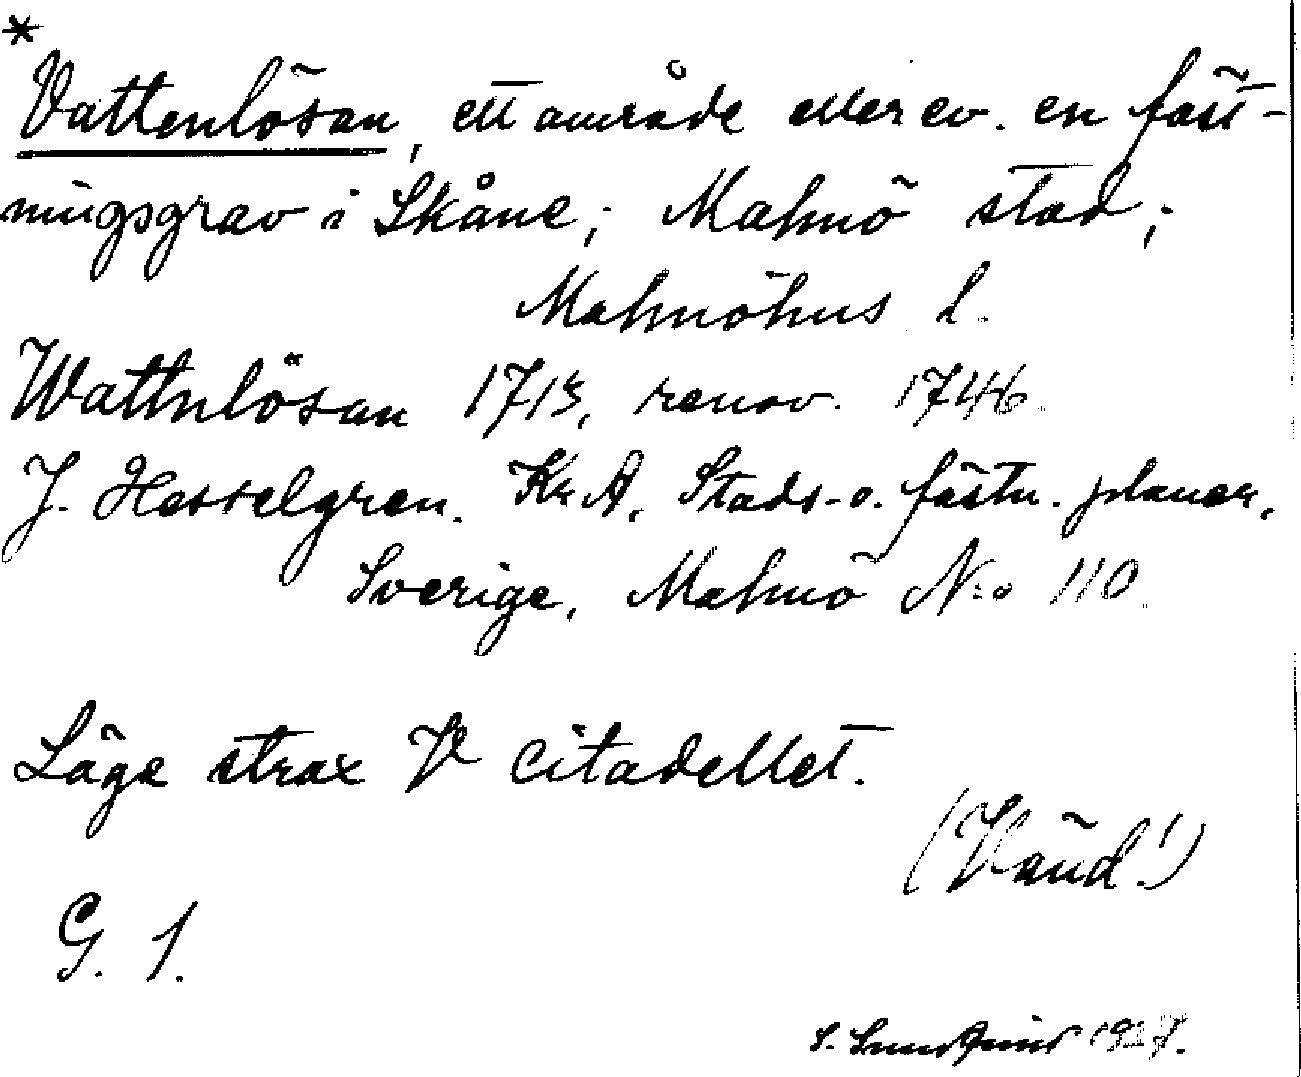 *
Vattenlösan, ett område eller ev. en fäst-
ningsgrav i Skåne; Malmö stad;
Malmöhus l.
Wattnlösan 1713, renov. 1746.
J. Hesselgren. Kr A. Stads- o. fästn. planer,
Sverige, Malmö N:o 110.
Läge strax V citadellet.
(Vänd!)
G. 1.
S. 1927.